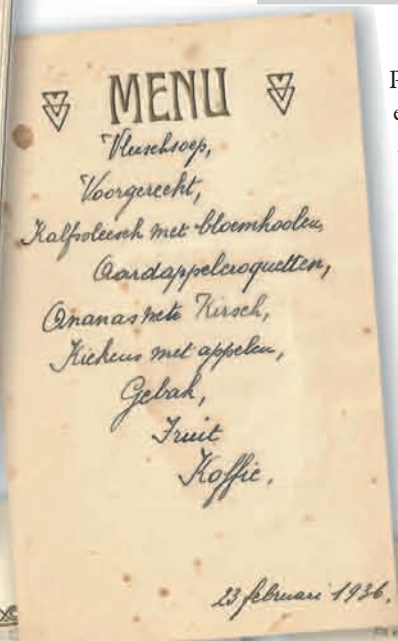 MENU
Vleeschsoep,
Voorgerecht,
Kalfsvleesch met bloemkoolen,
Aardappelcroquetten,
Ananas met Kirsch,
Kiekens met appelen,
Gebak,
Fruit
Koffie.
23 februari 1936.
P
e